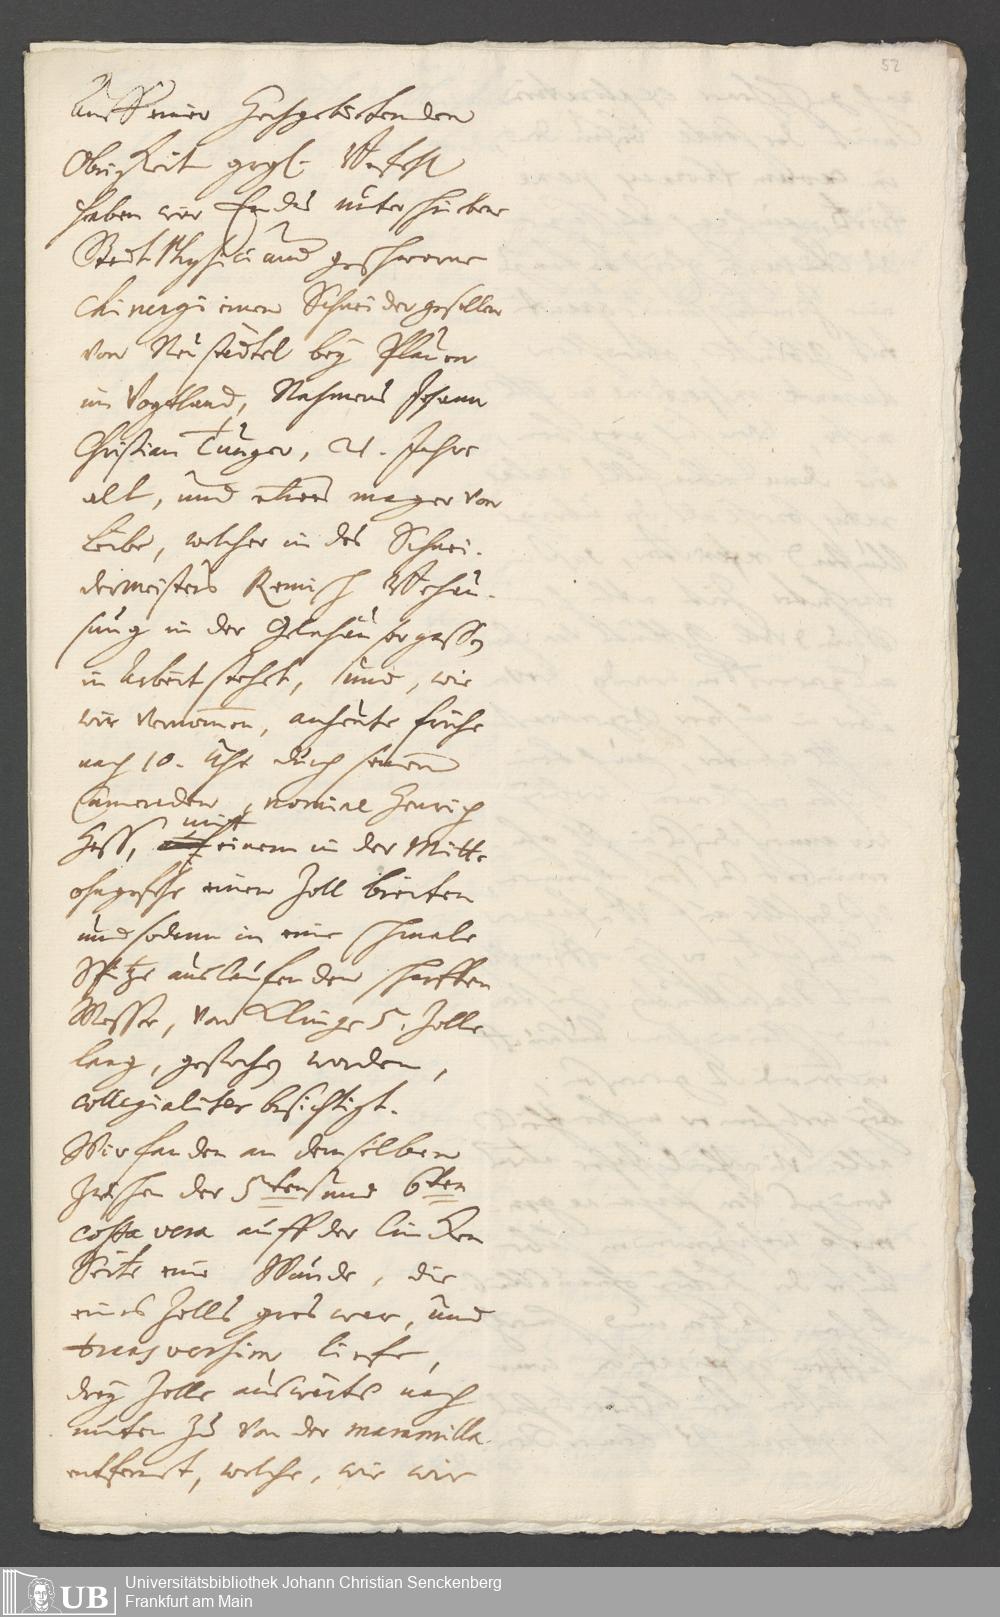 52
Auff einer Hochgebietenden
Obrigkeit grgl. Befehl
haben wir Endes unterschriebene
Stadt Physici und geschworne
Chirurgi einen Schneidergesellen
von Neustädtel bey Plauen
im Vogtland, Nahmens Johann
Christian Tunger, 21. Jahre
alt, und etwas mager von
Leibe, welcher in des Schnei-
dermeisters Remisch Behau-
sung in der Gelnhäusergassen
in Arbeit stehet, und, wie
wir vernommen, anheute frühe
nach 10. Uhr durch seinen
Cameraden, nomine Henrich
Hess, mit einem in der Mitte
ohngefehr einen Zoll breiten
und sodann in eine schmale
Spitze auslaufenden scharffen
Messer, von Klinge 5. Zolle
lang, gestochen worden,
collegialiter besichtigt.
Wir fanden an demselben
zwischen der 5ten und 6ten
costa vera auff der lincken
Seite eine Wunde, die
eines Zolls gros war, und
transversim liefe,
drey Zolle auswärts nach
unten zu von der mammilla
entfernt, welche, wie wir
UB
Universitätsbibliothek Johann Christian Senckenberg
Frankfurt am Main